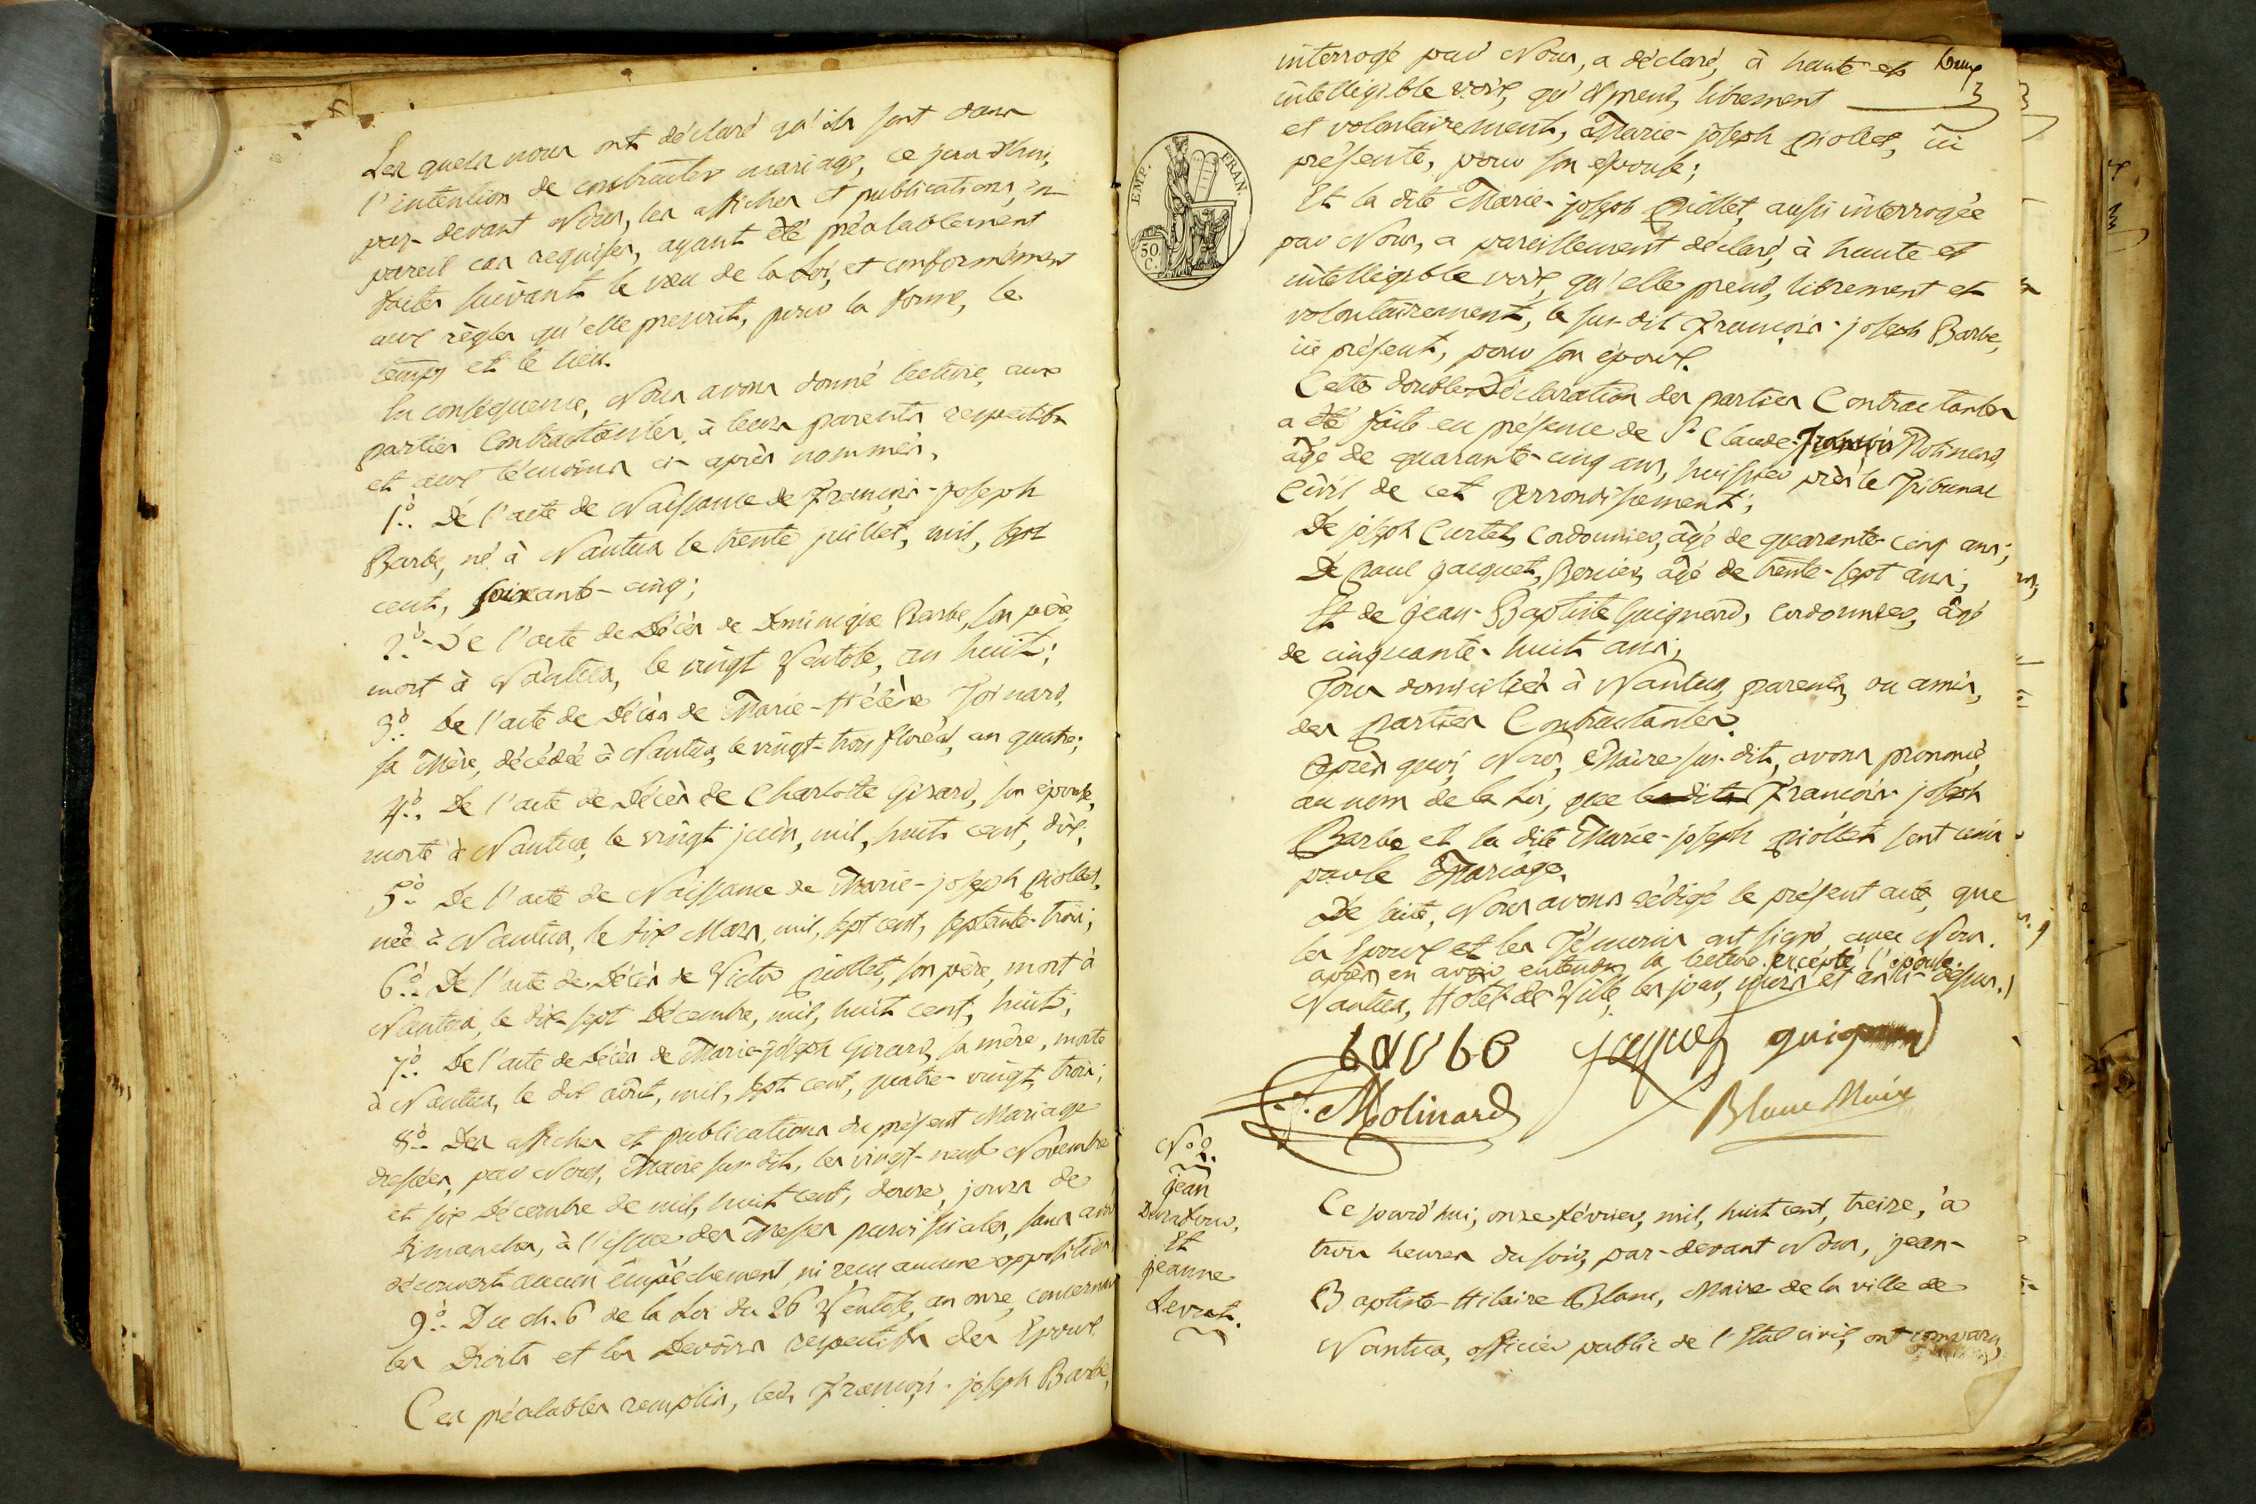 Les quels nous ont déclaré qu'ils sont dans
l'intention de contracter mariage, ce jourd'hui,
par-devant Nous, les affiches et publications, en
pareil cas requises, ayant été préalablement
faites suivant le vœu de la Loi, et conformément
aux règles qu'elle prescrit, pour la forme, le
temps et le lieu.
En conséquence, Nous avons donné lecture, aux
parties Contractantes, à leurs parents respectifs
et aux témoins ci-après nommés,
1º.. De l'acte de Naissance de François-joseph
Barbe, né à Nantua le trente juillet, mil, sept
cent, soixante-cinq;
2º.. De l'acte de Décès de Dominique Barbe, son père,
mort à Nantua, le vingt Ventose, an huit;
3º.. De l'acte de Décès de Marie-Hélène Joinard,
sa Mère, décédée à Nantua, le vingt-trois floréal, an quatre;
4º.. De l'acte de Décès de Charlotte Girard, son épouse,
morte à Nantua, le vingt juin, mil, huit cent, dix;
5º.. De l'acte de Naissance de Marie-joseph Piollet,
née à Nantua, le dix Mars, mil, sept cent, septante-trois;
6º.. De l'acte de Décès de Victor Piollet, son père, mort à
Nantua, le dix-sept Décembre, mil, huit cent, huit;
7º.. De l'acte de Décès de Marie-joseph Girard, sa mère, morte
à Nantua, le dix août, mil, sept cent, quatre-vingt, trois;
8º.. Des affiches et publications du présent Mariage
dressées, par Nous, Maire sus-dit, les vingt-neuf Novembre
et six Décembre de mil, huit cent, douze, jours de
dimanches, à l'issue des Messes paroissiales, sans avoir
découvert aucun empêchement, ni reçu aucune opposition
9º.. Du ch. 6 de la Loi du 26 Ventose, an onze, concernant
les Droits et les Devoirs respectifs des Epoux.
Ces préalables remplis, led. François-joseph Barbe,
interrogé par Nous, a déclaré, à haute et
intelligible voix, qu'il prend, librement
et volontairement, Marie-joseph Piollet, ici
présente, pour son épouse;
Et la dite Marie-joseph Piollet, aussi interrogée
par Nous, a pareillement déclaré, à haute et
intelligible voix, qu'elle prend, librement et
volontairement, le sus-dit François-joseph Barbe,
ici présent, pour son époux.
Cette double Déclaration des parties Contractantes
a été faite en présence de Sr. Claude-François Molinard,
âgé de quarante-cinq ans, huissier près le Tribunal
Civil de cet Arrondissement;
De joseph Curtet, Cordonnier, âgé de quarante-cinq ans;
De Paul Jacquet, âgé de trente-sept ans;
Et de jean-Baptiste Guignard, Cordonnier, âgé
de cinquante-huit ans;
Tous domiciliés à Nantua, parents, ou amis,
des Parties Contractantes.
Après quoi, Nous, Maire sus-dit, avons prononcé,
au nom de la Loi, que François-joseph
Barbe et la dite Marie-joseph Piollet sont unis
par le Mariage.
De suite, Nous avons rédigé le présent acte, que
les Epoux et les Témoins ont signé avec Nous.
après en avoir entendu la lecture. excepté l'épouse.
Nantua, Hotel-de-Ville, les jour, mois et an ci-dessus.
EMP. FRAN.
50 C.
barbe jaquet guignard
Molinard
Blanc Maire
Nº 2.
jean
Et
jeanne
Levrat.
Ce jourd'hui, onze février, mil, huit cent, treize, à
trois heures du soir, par-devant Nous, jean-
Baptiste-Hilaire Blanc, Maire de la ville de
Nantua, officier public de l'Etat civil, ont comparu,